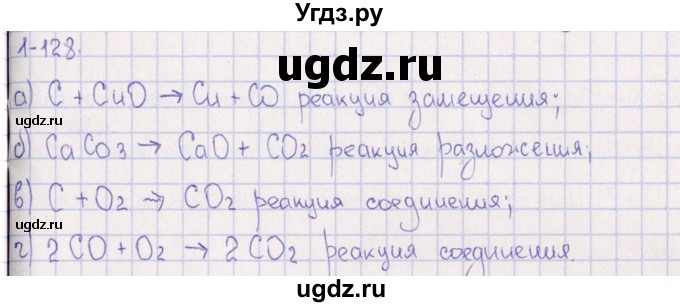 Угдз.ру
1-128.
ugdz.ru
а) C + CuO → Cu + CO реакция замещения;
ugdz.ru
ugdz.ru
б) CaCO3 → CaO + CO2 реакция разложения;
ugdz.ru
ugdz.ru
в) C + O2 → CO2 реакция соединения;
ugdz.ru
г) 2CO + O2 → 2CO2 реакция соединения.
ugdz.ru
ugdz.ru